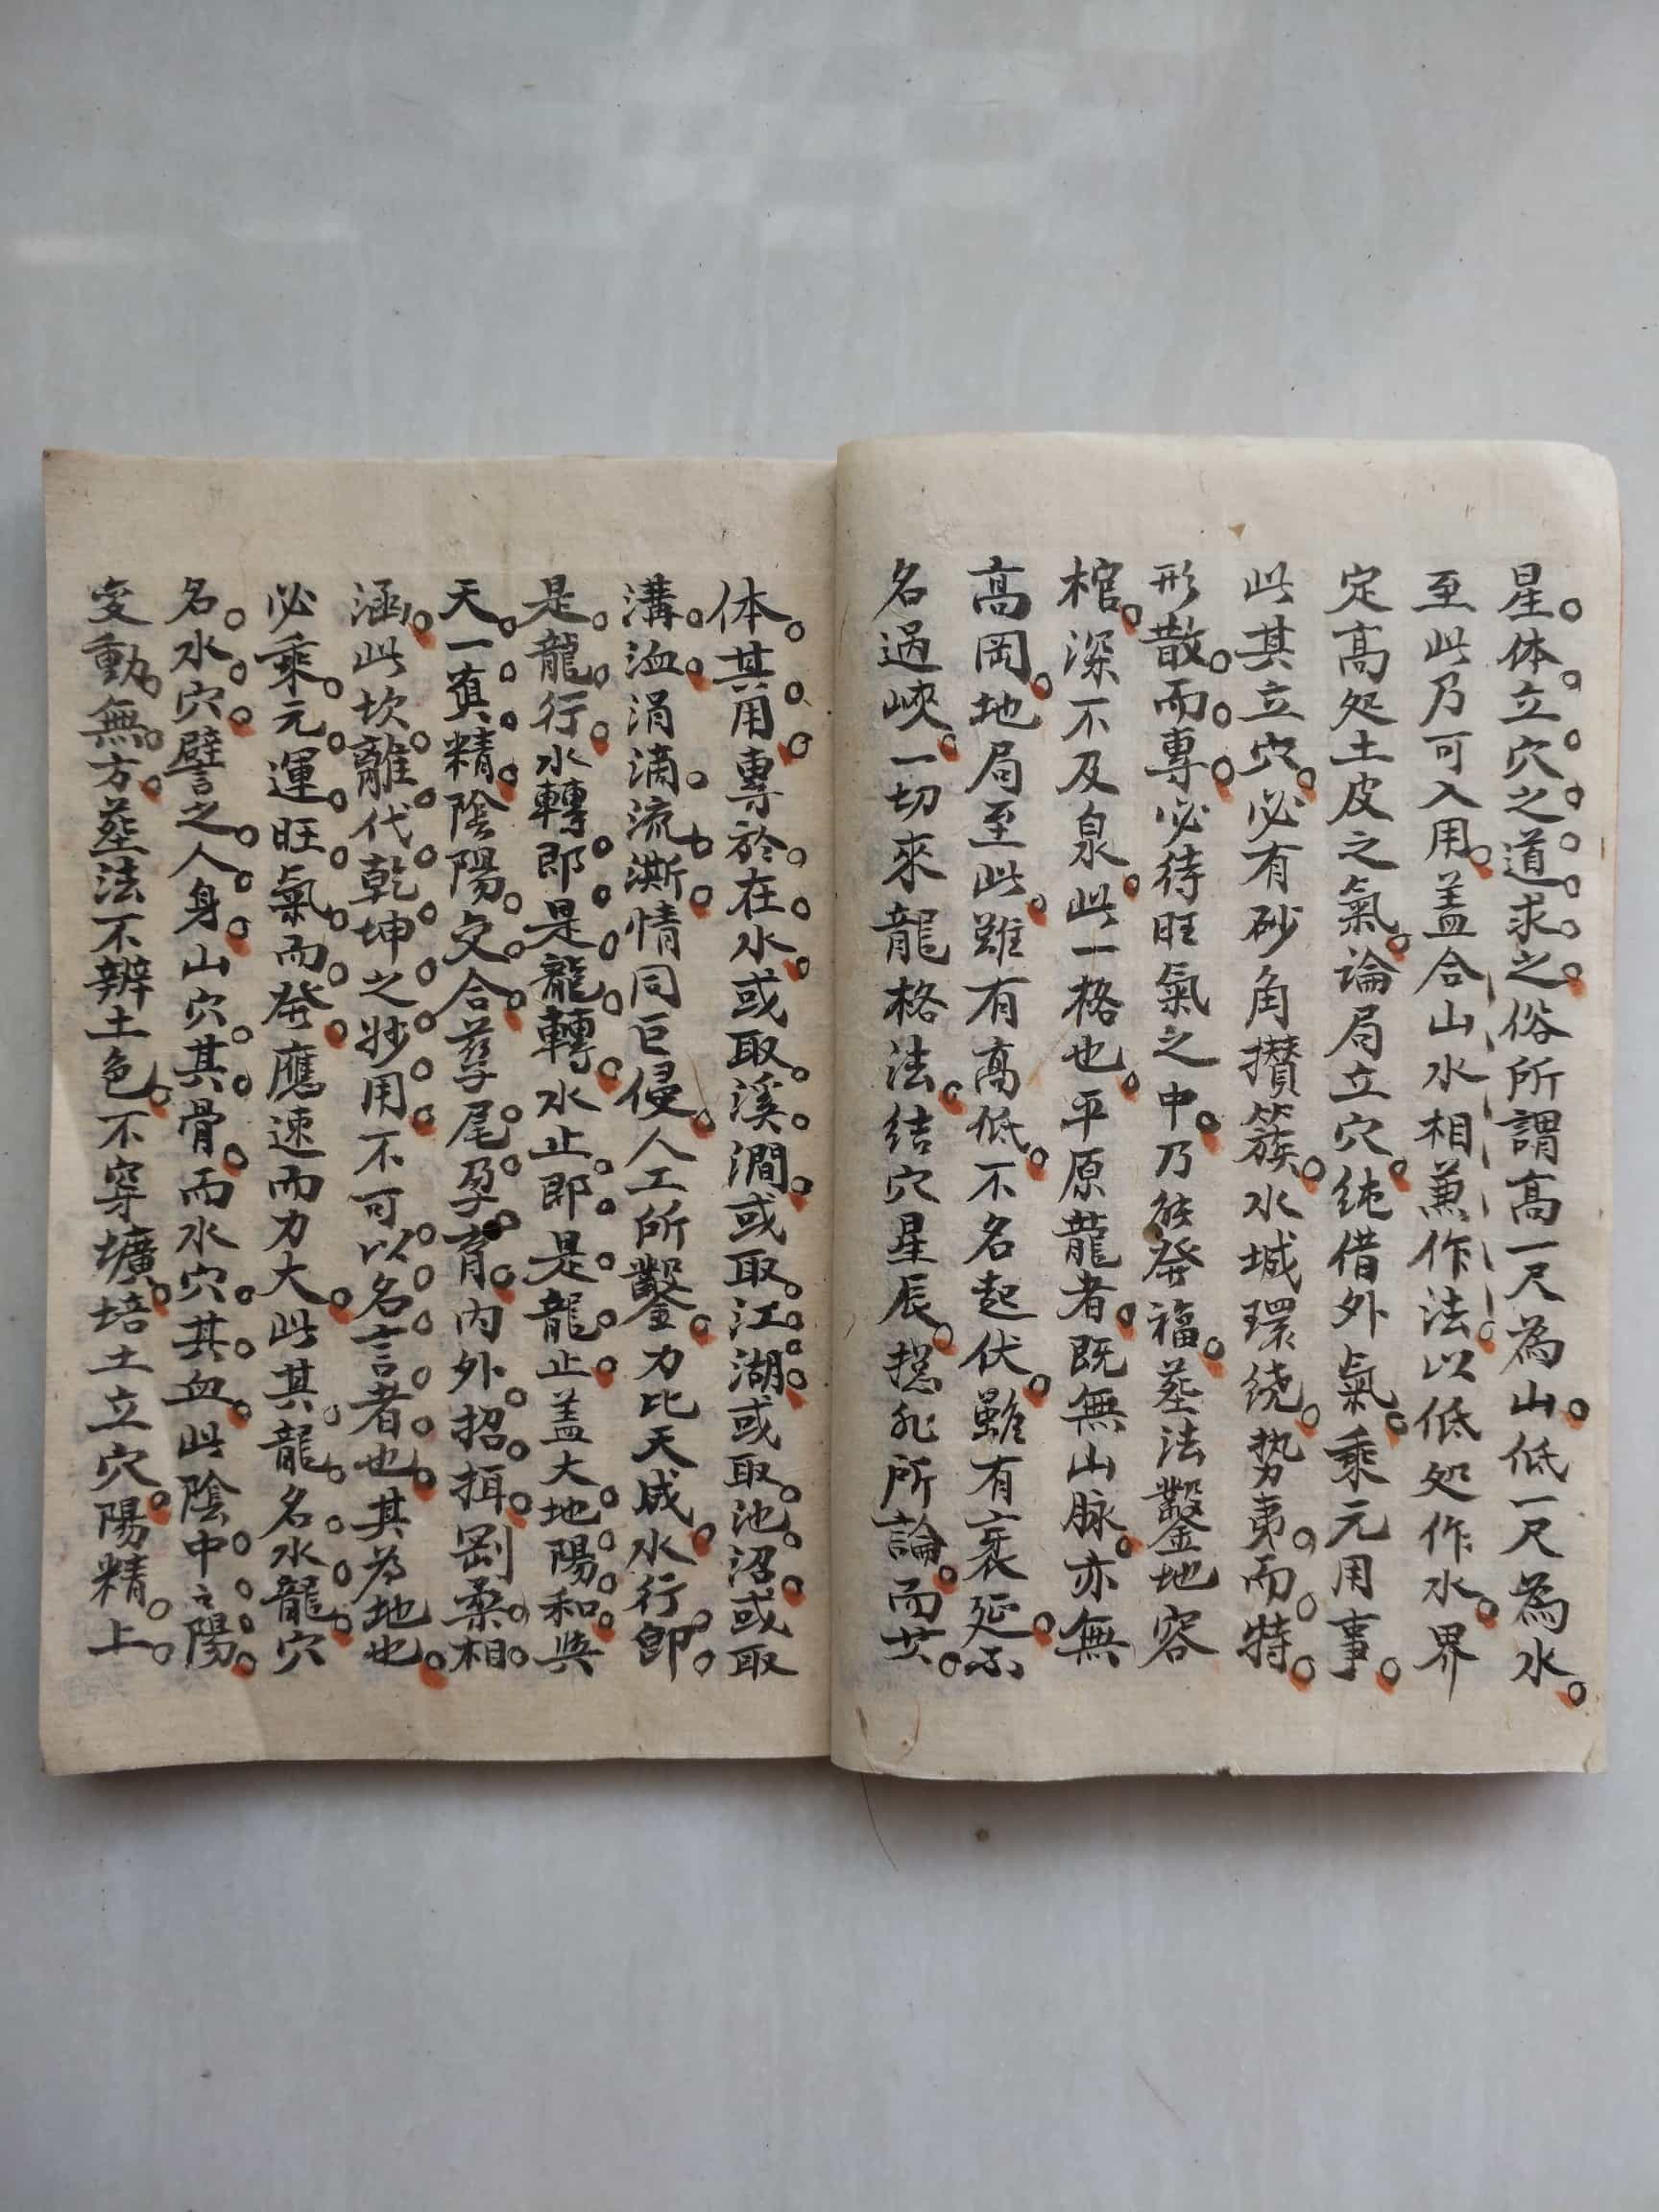 星体立穴之道求之俗所謂高一尺為山低一尺為水
至此乃可入用盖合山水相兼作法以低処作水界
定高処土皮之氣論局立穴純借外氣乘元用事
此其立穴必有砂角攢簇水城環绕势夷而特
形散而專必待旺氣之中乃能發福塟法鑿地容
棺深不及泉此一格也平原龍者既無山脉亦無
高岡地局至此雖有高低不名起伏雖有袤延不
名過峽一切來龍格法結穴星辰揔非所論而其
体其用專於在水或取溪澗或取江湖或取池沼或取
溝洫涓滴流澌情同巨侵人工所鑿力比天成水行即
是龍行水轉即是龍轉水止即是龍止盖大地陽和與
天一真精陰陽交合孳尾孕育内外招揖剛柔相
涵此坎離代乾坤之妙用不可以名言者也其為地也
必乘元運旺氣而發應速而力大此其龍名水龍穴
名水穴譬之人身山穴其骨而水穴其血此陰中之陽
变動無方塟法不辨土色不穿壙培土立穴陽精上